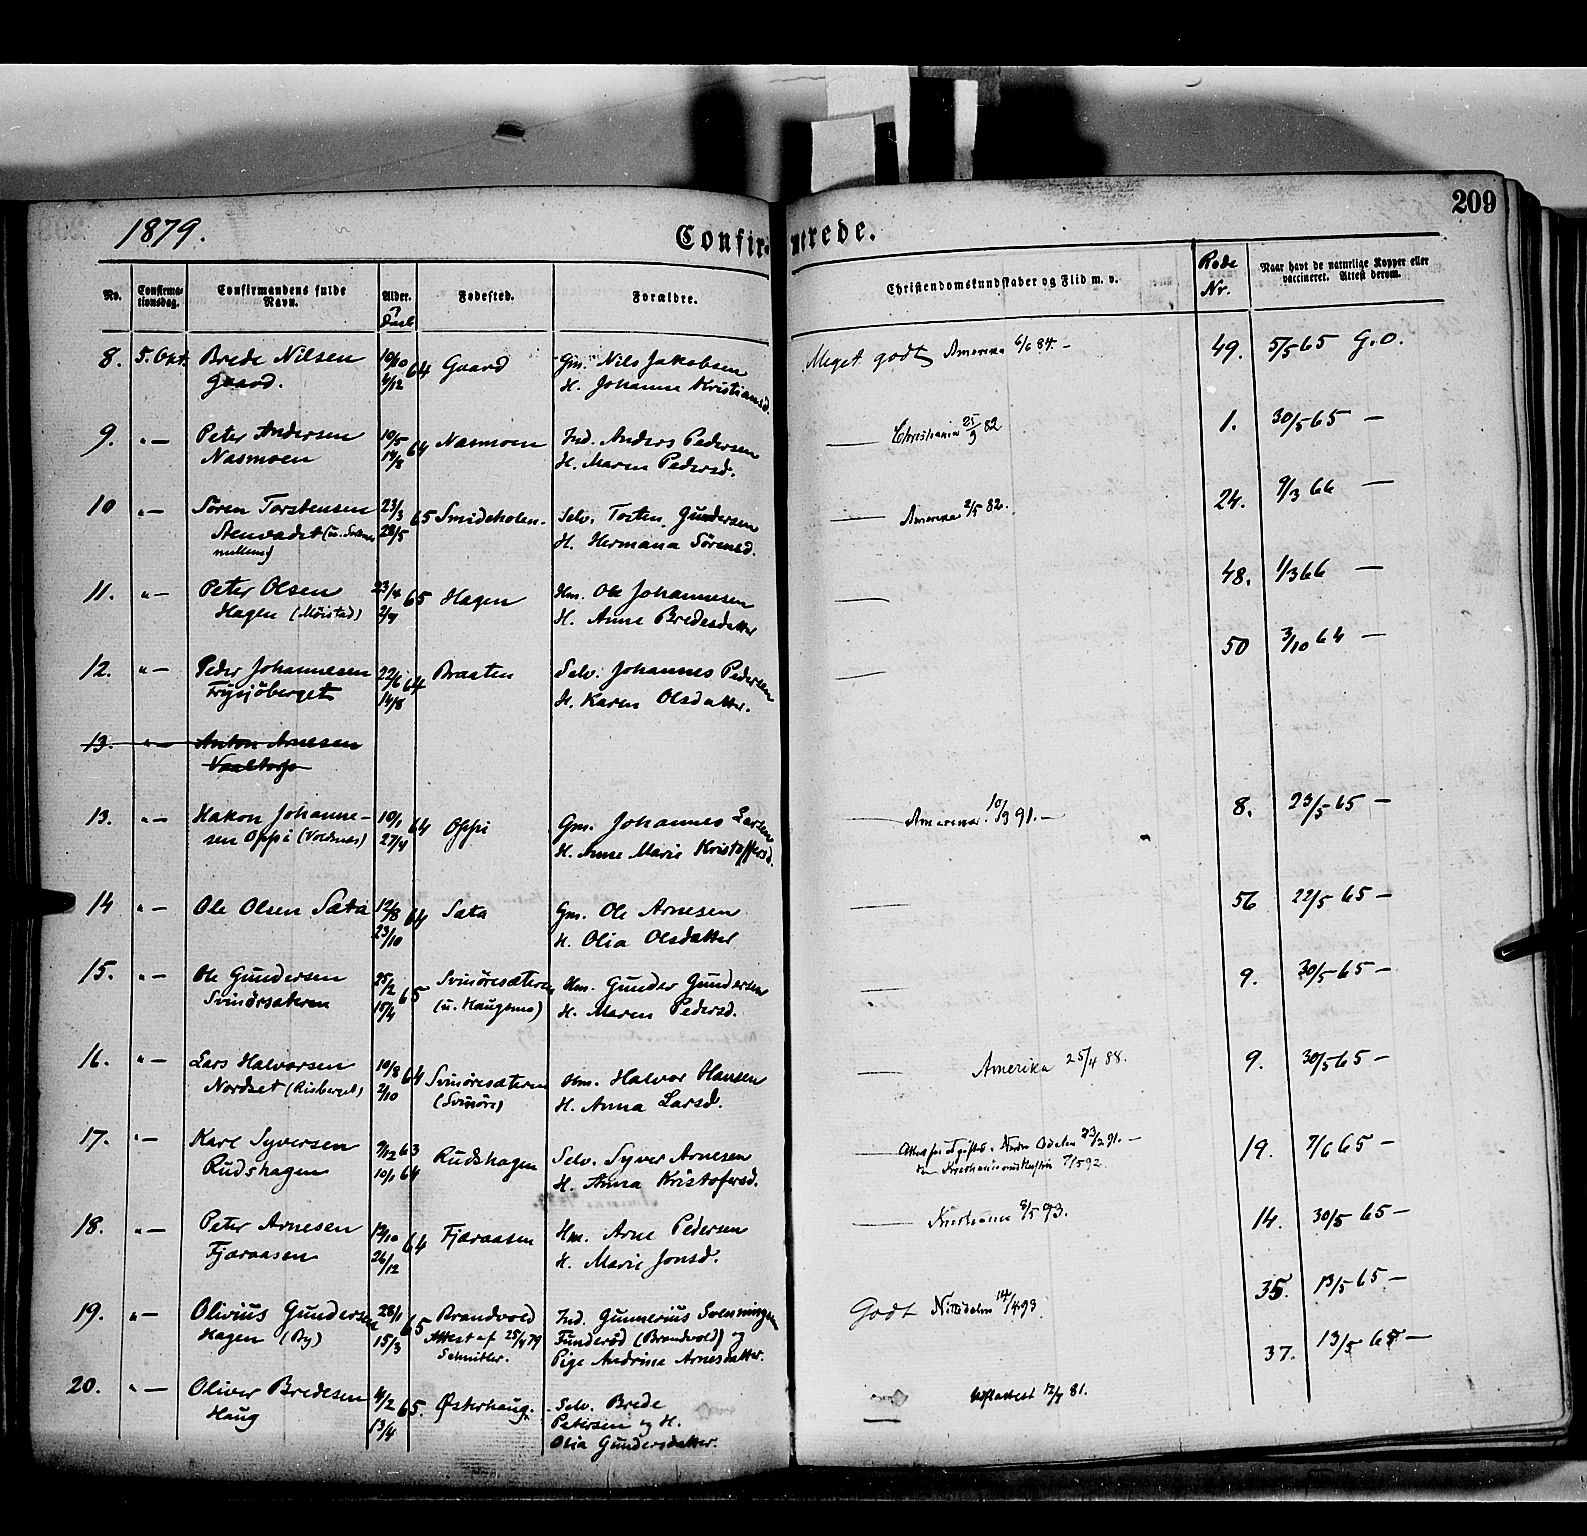 209
1879.
Confirmerede.
No.
Confirma-
tionsdag.
Confirmandens fulde
Navn.
Alder.
Daab
Fødested.
Forældre.
Christendomskundskaber og Flid m. v.
Rode
Nr.
Naar havt de naturlige Kopper eller
vaccineret. Attest derom.
8. 5. Okt. Brede Nilsen 10/10 64 Gaard Gm. Nils Jakobsen Meget godt Amerika 6/6 84.- 49. 5/5 65 G.O.
Gaard. 4/12 H. Johanne Kristiansd.
9. " — Peter Andersen 10/5 64 Nasmoen Ind. Anders Pedersen — Christiania 25/9 82 1. 30/5 65 —
Nasmoen 14/8 H. Maren Pedersd.
10 " — Søren Torstensen 23/3 65 Smideholen. Selv. Tosten Gundersen — Amerika 2/5 82. 24. 9/3 66 —
28/5 H. Hermana Sørensd.
11. " — Peter Olsen 23/4 65 Hagen Hm. Ole Johannesen — 48. 1/3 66 —
Hagen (Mørstad) H. Anne Bredesdatter
12. " — Peder Johannesen 22/6 64 Braaten Selv. Johannes Pedersen — 50 3/10 64 —
Frysjöberget 14/8 H. Karen Olsdatter.
13. " — Anton Arnesen
13. " — Hakon Johanne- 10/1 64 Oppi Gm. Johannes Larsen — Amerika 10/3 91.— 8. 23/5 65 —
sen Oppi (Voldnes) 27/4 H. Anne Marie Kristoffersd.
14 " — Ole Olsen Sæta 12/8 64 Sæta Gm. Ole Arnesen — 56 22/5 65 —
23/10 H. Olia Olsdatter
15. " — Ole Gundersen 25/2 65 Svinøresæteren Hm. Gunder Gundersen — 9. 30/5 65 —
Svinörsæteren 15/4 (u. Haugens) H. Maren Pedersd.
16. " — Lars Halvorsen 10/8 64 Svinøresæteren Hm. Halvor Hansen — Amerika 25/4 88. 9. 30/5 65 —
Nordset (Risberget) 2/10 (Svinøre) H. Anna Larsd.
17. " — Karl Syversen 9/12 63 Rudshagen Selv. Syver Arnesen — 19. 7/6 65 —
Rudshagen 10/1 64 H. Anna Kristofersd.
18. " — Peter Arnesen 64 Fjæraasen Hm. Arne Pedersen — Kristiania 8/5 93. 14. 30/5 65 —
Fjæraasen 26/12 H. Marie Jonsd.
19. " — Olivius Gundersen 28/1 65 Brandvold Ind. Gunnerius Svenningsen Godt Nittedalen 14/4 93 35. 13/5 65 —
Hagen (By) 15/3 Attest af 25/4 79 Funderød (Brandvold) og
Schnitler. Pige Andrine Arnesdatter.
37. 13/5 65 —
20. " — Oliver Bredesen 4/2 65. Østerhaug. Selv. Brede 81.
Haug 13/4 Petersen og H.
Olia Gundersdatter.